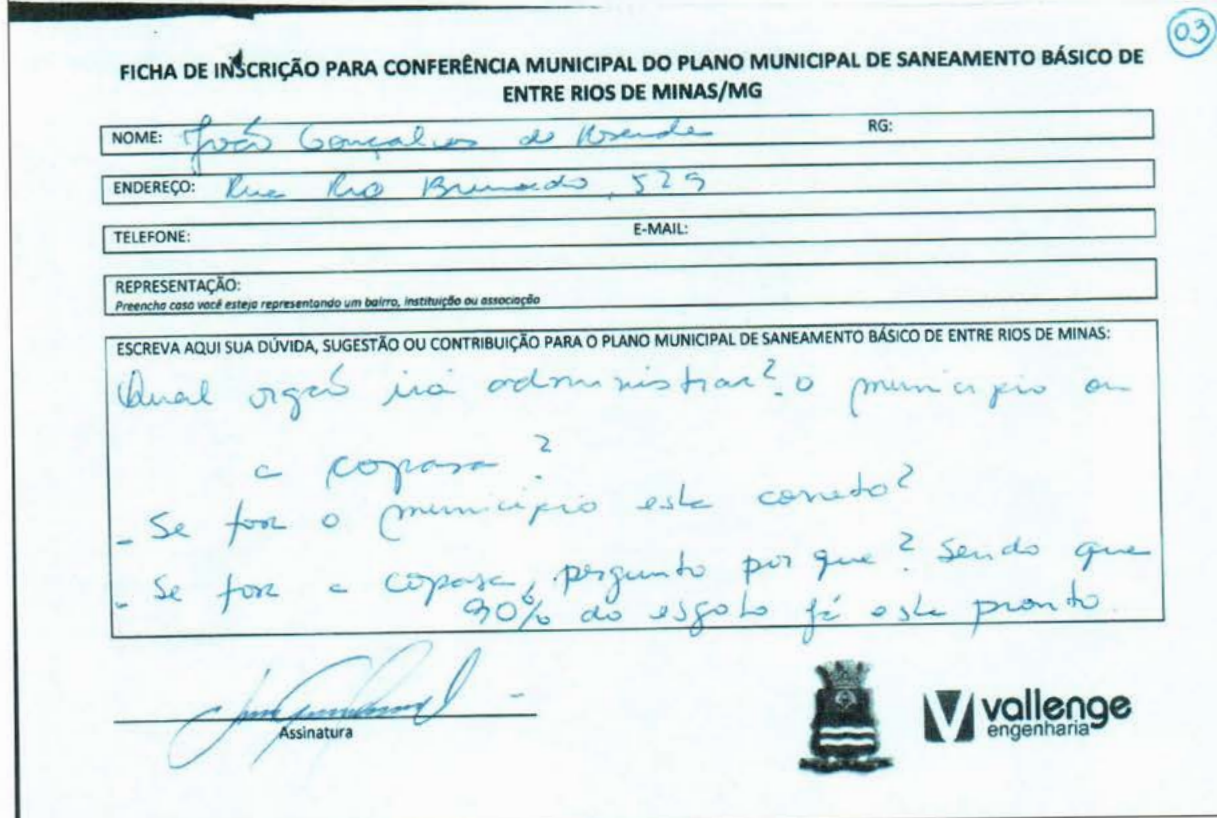 03
FICHA DE INSCRIÇÃO PARA CONFERÊNCIA MUNICIPAL DO PLANO MUNICIPAL DE SANEAMENTO BÁSICO DE
ENTRE RIOS DE MINAS/MG
NOME: João Gonçalves de Resende RG:
ENDEREÇO: Rua Rio Brumado, 529
TELEFONE: E-MAIL:
REPRESENTAÇÃO:
Preencha caso você esteja representando um bairro, instituição ou associação
ESCREVA AQUI SUA DÚVIDA, SUGESTÃO OU CONTRIBUIÇÃO PARA O PLANO MUNICIPAL DE SANEAMENTO BÁSICO DE ENTRE RIOS DE MINAS:
Qual orgão irá administrar? o municipio ou
a copasa?
- Se for o municipio esta correto?
- Se for a copasa, pergunto por que? Sendo que
90% do esgoto já esta pronto.
Assinatura
vallenge
engenharia